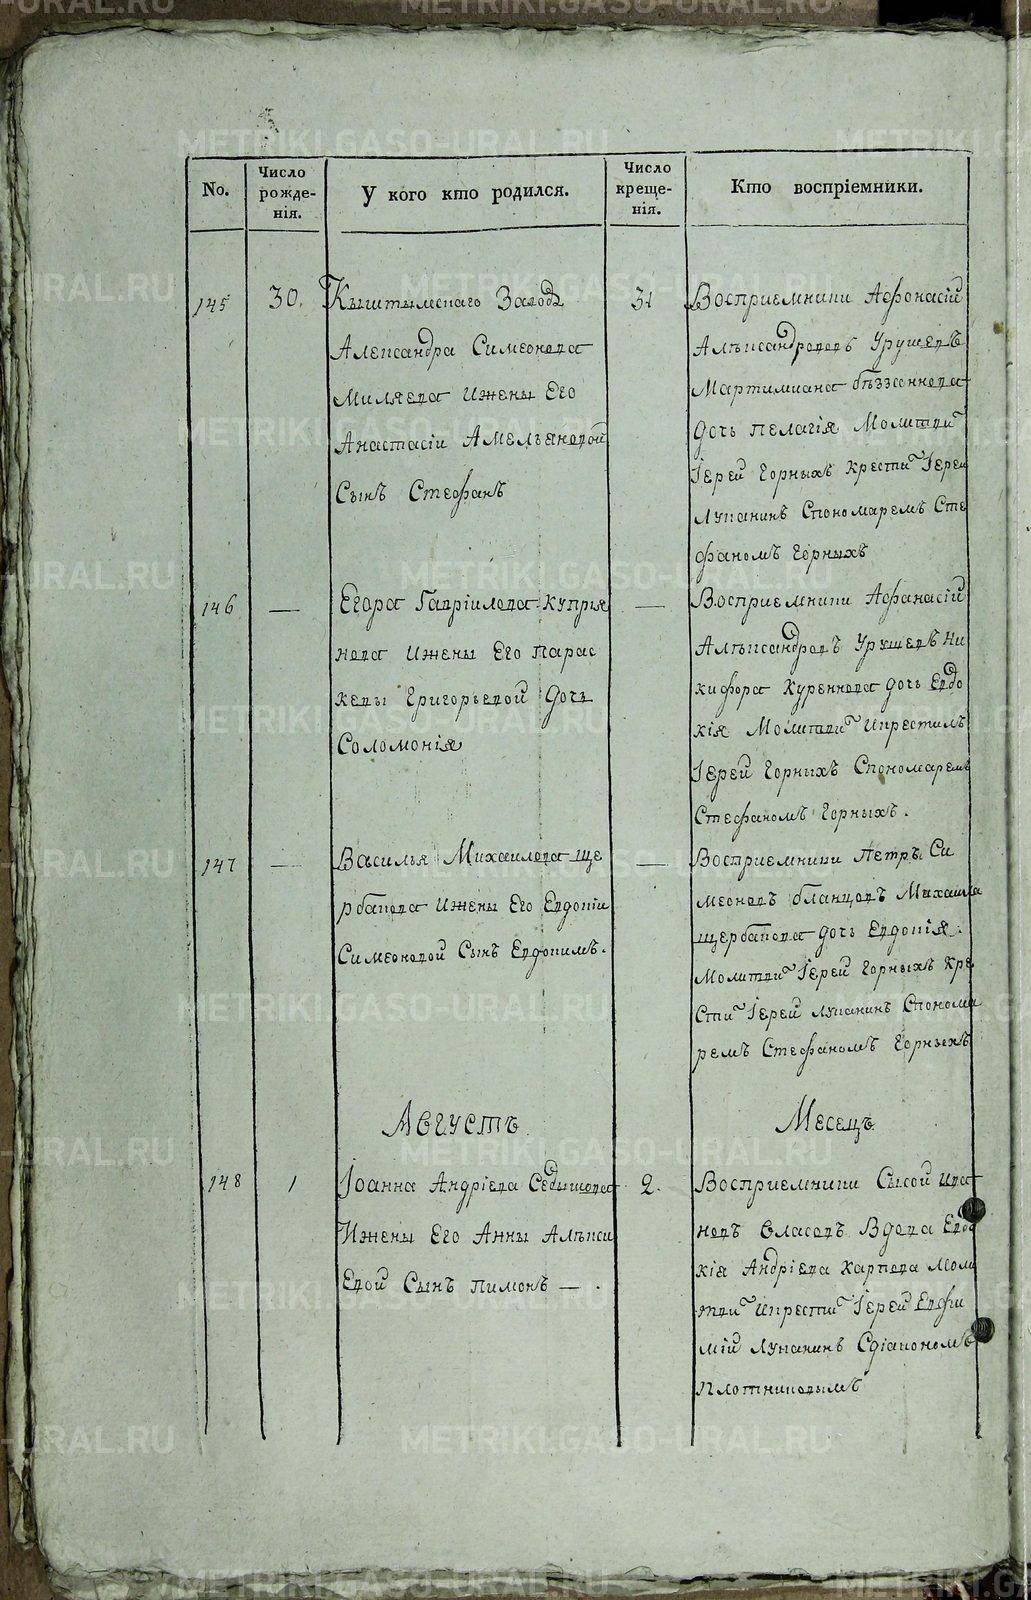 No.
Число рожде-
нія.
У кого кто родился.
Число креще-
нія.
Кто воспріемники.
145
30.
Кыштымскаго Завода
Александра Симеонова
Миляева Ижены Его
Анастасіи Амельяновой
Сынъ Стефанъ
31
Восприемники Афонасій
Алѣксандровъ Урушевъ
Мартимиана бѣззоннова
дочь пелагія Молитви
Іерей Горныхъ крести Іерей
Лупанинъ Спономаремъ Сте
фаномъ Горныхъ
146
—
Егора Гавріилова Куприя
нова Ижены Его Парас
кевы Григорьевой Дочь
Соломонія
—
Восприемники Афанасій
Алѣксандровъ Урушевъ Ни
кифора Куреннова дочь Евдо
кія Молитви Икрестилъ
Іерей Горныхъ Спономаремъ
Стефаномъ Горныхъ.
147
—
Василья Михаилова ще
рбакова Ижены Его Евдокіи
Симеоновой Сынъ Евдокимъ.
—
Восприемники Пѣтръ Си
меоновъ бланцовъ Михаила
щербакова дочь Евдокія.
Молитви Іерей Горныхъ Кре
сти Іерей Лупанинъ Спонома
ремъ Стефаномъ Горныхъ
Августъ
Месецъ
148
1
Іоанна Андріева Седышова
Ижены Его Анны Алѣкси
Евой Сынъ Пимонъ —.
2.
Восприемники Сысой Ива
новъ Власовъ Вдова Евдо
кія Андріева Карпова Моли
тви Икрести Іерей Евфи
мій Лупанинъ Сдіакономъ
Плотниковымъ
METRIKI.GASO-URAL.RU